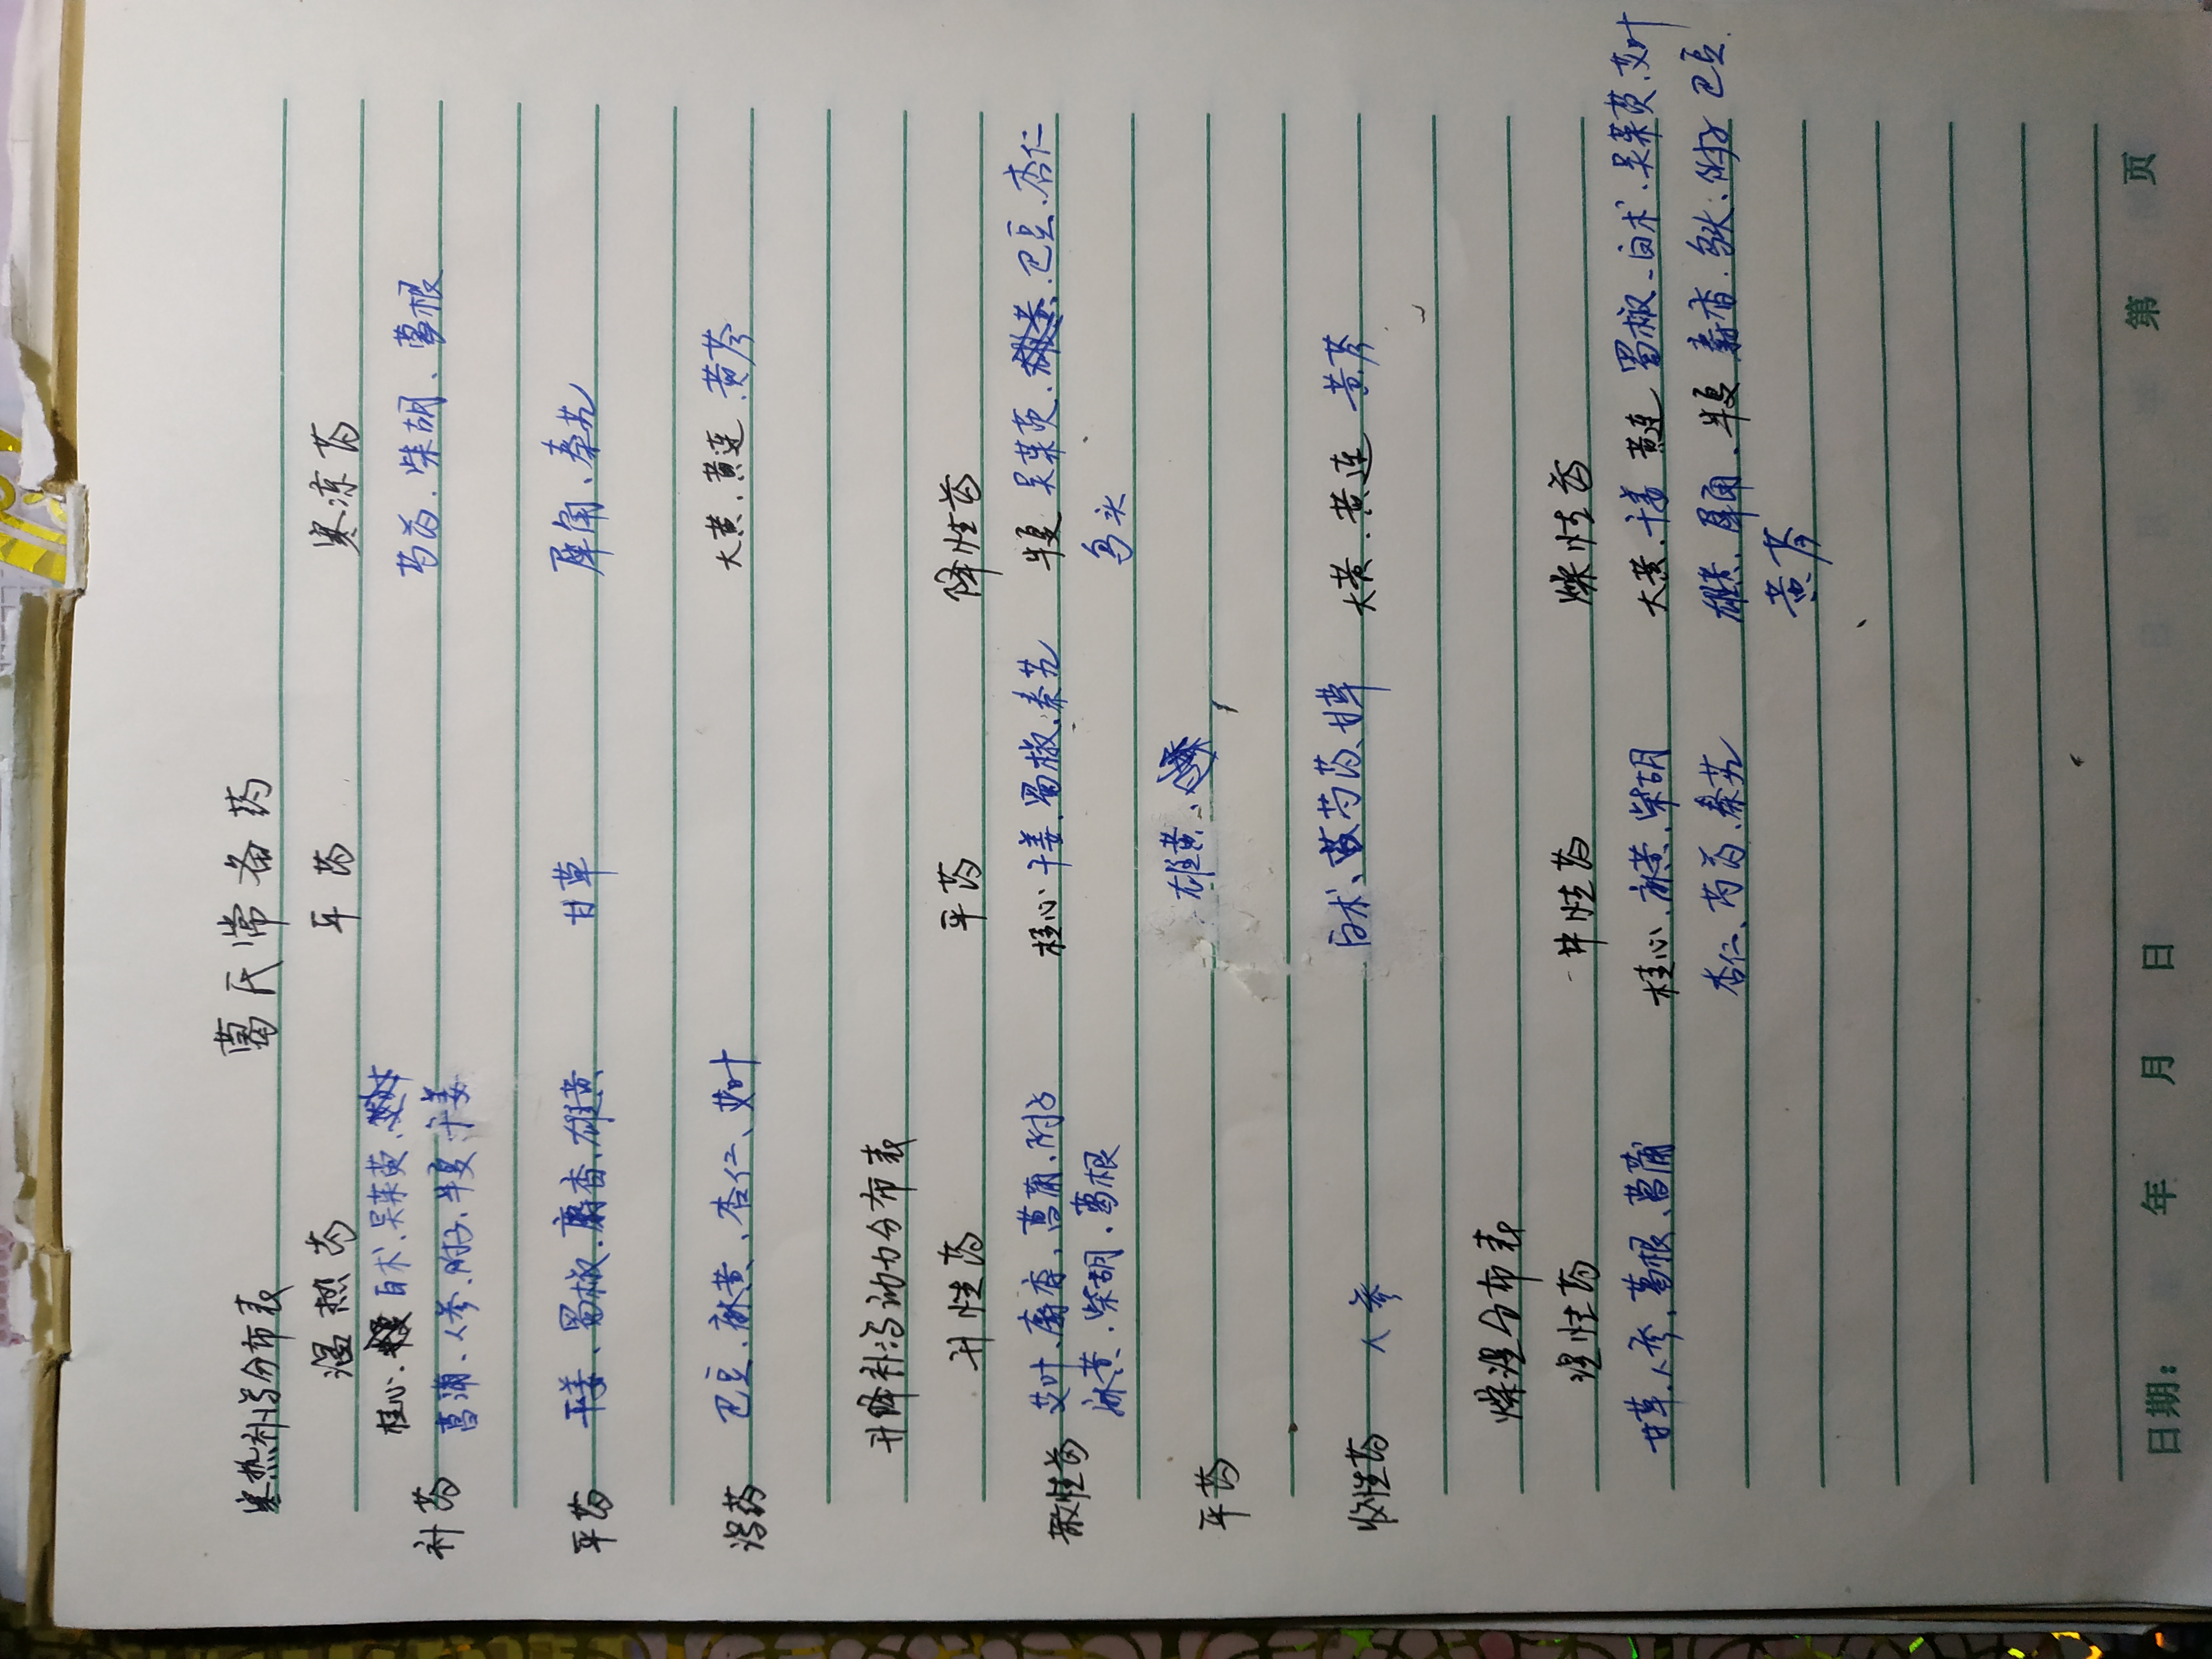 葛氏常备药
寒热补泻分布表
温热药 平药 寒凉药
桂心、白术、吴茱萸、
补药 菖蒲、人参、附子、半夏、干姜 芍药、柴胡、葛根
平药 蜀椒、麝香、雄黄 甘草 犀角、秦艽
泻药 巴豆、麻黄、杏仁、艾叶 大黄、黄连、黄芩
升降补泻动力分布表
升性药 平药 降性药
散性药 艾叶、麝香、菖蒲、附子 桂心、干姜、蜀椒、秦艽 半夏、吴茱萸、巴豆、杏仁
麻黄、柴胡、葛根 乌头
平药 雄黄、
收性药 人参 白术、芍药、甘草 大黄、黄连、黄芩
燥湿分布表
湿性药 平性药 燥性药
甘草、人参、葛根、菖蒲 桂心、麻黄、柴胡 大黄、干姜 黄连 蜀椒、白术、吴茱萸、艾叶
杏仁、芍药、秦艽 雄黄、犀角、半夏 麝香、乌头、附子 巴豆
黄芩
日期： 年 月 日 第 页